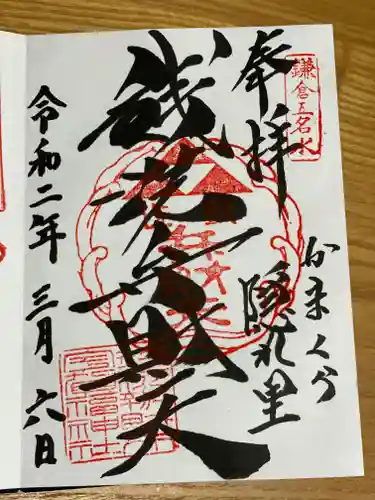 鎌倉五名水
奉拝
かまくら
隠れ里
銭洗弁財天
令和二年三月六日